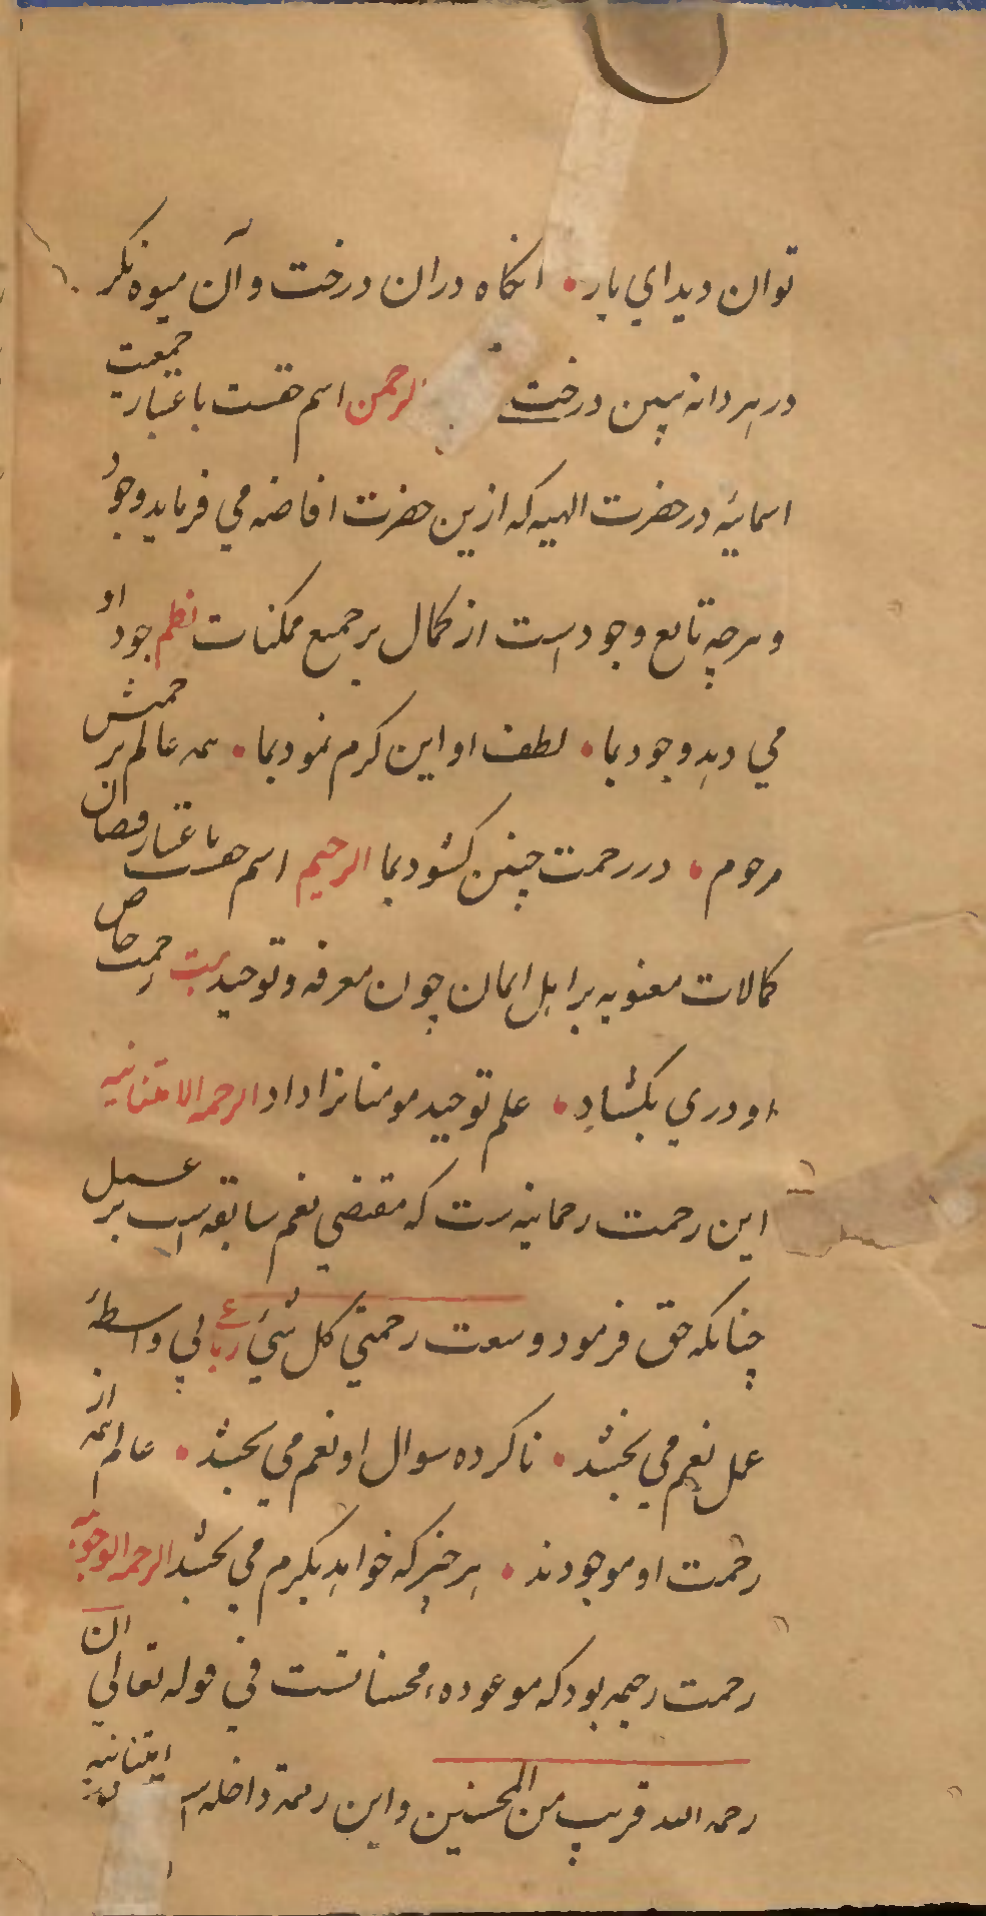 توان دید ای یار • انکاه دران درخت و آن میوه نکر
در هر دانه ببین درخت الرحمن اسم حقست باعتبار جمعیت
اسمائیه در حضرت الهیه که ازین حضرت افاضه می فرماید وجود
و هرچه تابع وجود است از کمال بر جمیع ممکنات نظم جود او
می دهد وجود بما • لطف او این کرم نمود بما • همه عالم برحمتش
مرحوم • در رحمت چنین کشود بما الرحیم اسم حقست باعتبار فیضان
کمالات معنویه بر اهل ایمان چون معرفه و توحید بیت رحمت خاص
او دری بکشاد • علم توحید مومنانرا داد الرحمه الامتنانیه
این رحمت رحمانیه است که مقتضی نعم سابقه است بر عمل
چنانکه حق فرمود وسعت رحمتی کل شیء رباعی بی واسطهٔ
عمل نعم می بخشد • ناکرده سوال او نعم می بخشد • عالم همه از
رحمت او موجودند • هر چیز که خواهد بکرم می بخشد الرحمه الوجوبیه
رحمت رحیمیه بود که موعوده محسنانست فی قوله تعالی ان
رحمه الله قریب من المحسنین و این رحمة داخله است امتنانیه